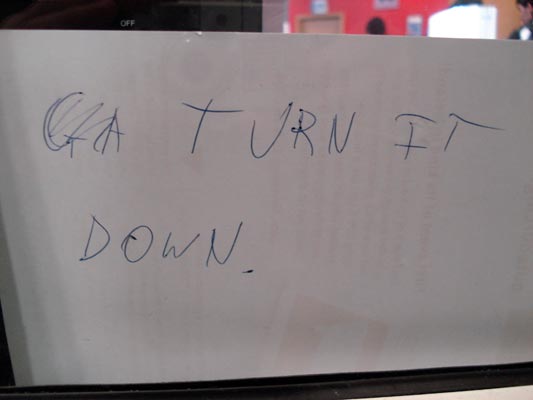 OFF
GA TURN IT
DOWN.